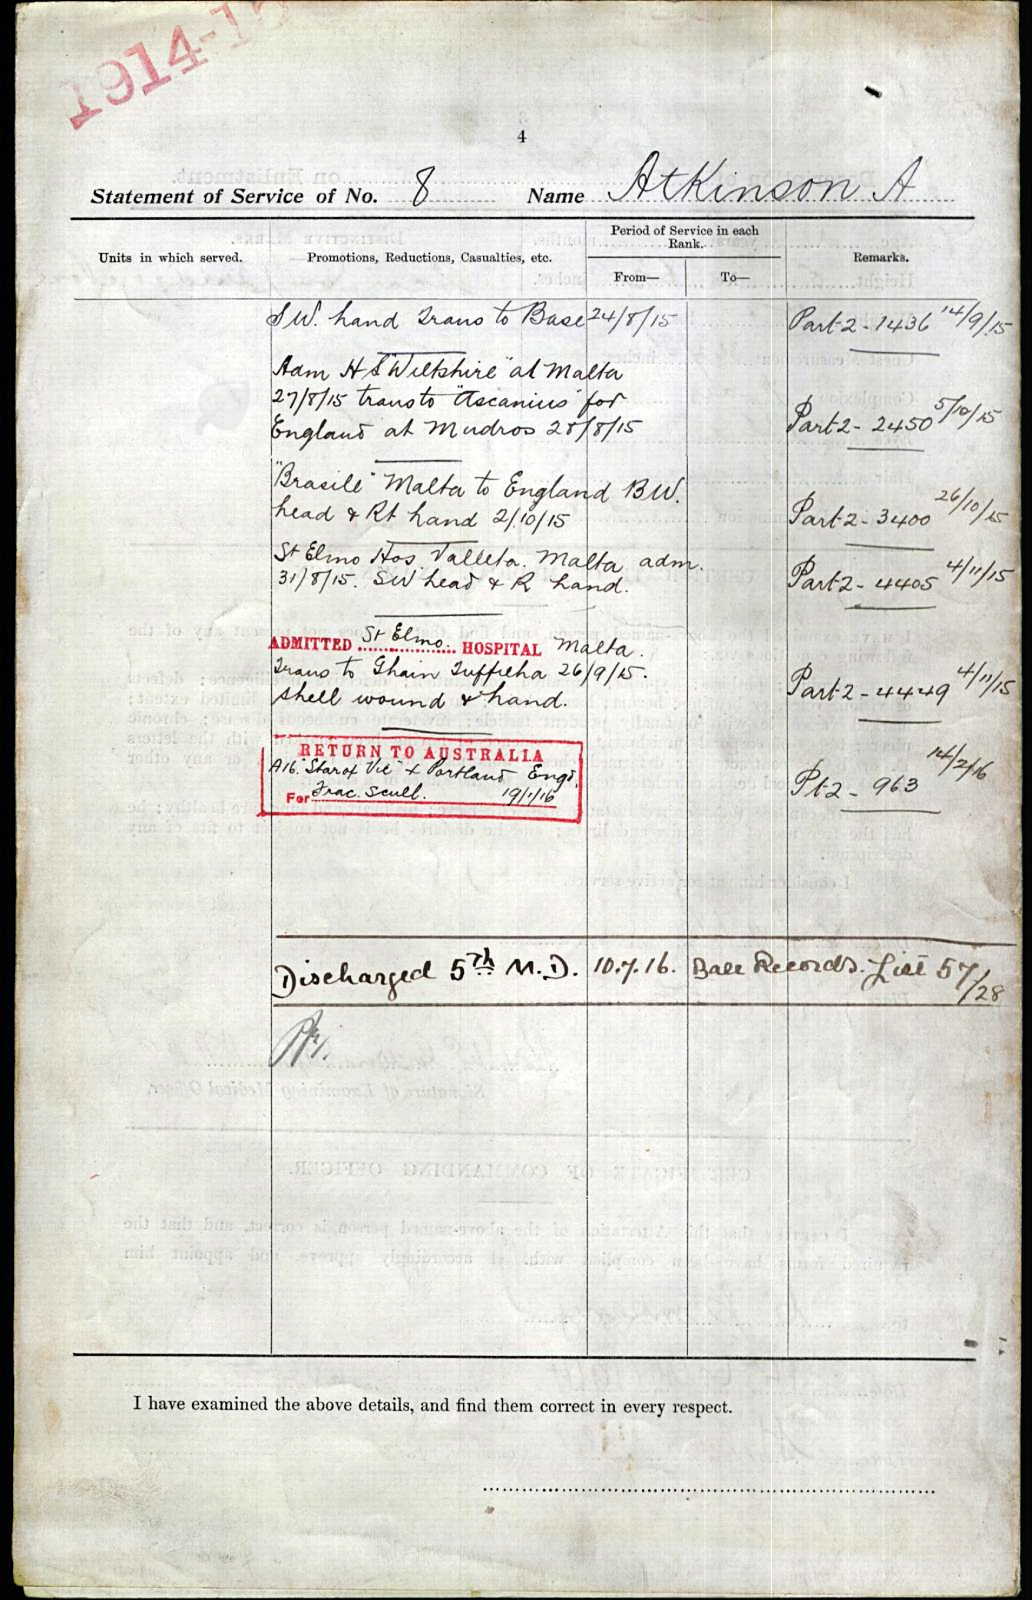 1914-15
4
Statement of Service of No. 8 Name Atkinson A
Units in which served. Promotions, Reductions, Casualties, etc. Period of Service in each Rank. Remarks.
From— To—
S.W. hand Trans to Base 24/8/15 Part 2 - 1436 14/9/15
Adm H S "Wiltshire" at Malta
27/8/15 trans to "Ascanius" for
England at Mudros 28/8/15 Part 2 - 2450 5/10/15
"Brasile" Malta to England B.W.
head & Rt hand 2/10/15 Part 2 - 3400 26/10/15
St Elmo Hos. Valleta. Malta adm.
31/8/15. SW head & R hand. Part 2 - 4405 4/11/15
ADMITTED St Elmo. HOSPITAL Malta.
Trans to Ghain Tuffieha 26/9/15.
Shell wound & hand. Part 2 - 4449 4/11/15
RETURN TO AUSTRALIA
A16 "Star of Vic" & Portland Engd.
For Frac. Scull. 19/1/16 Pt 2 - 963 14/2/16
Discharged 5th M.D. 10.7.16. Base Records. List 57/28
I have examined the above details, and find them correct in every respect.